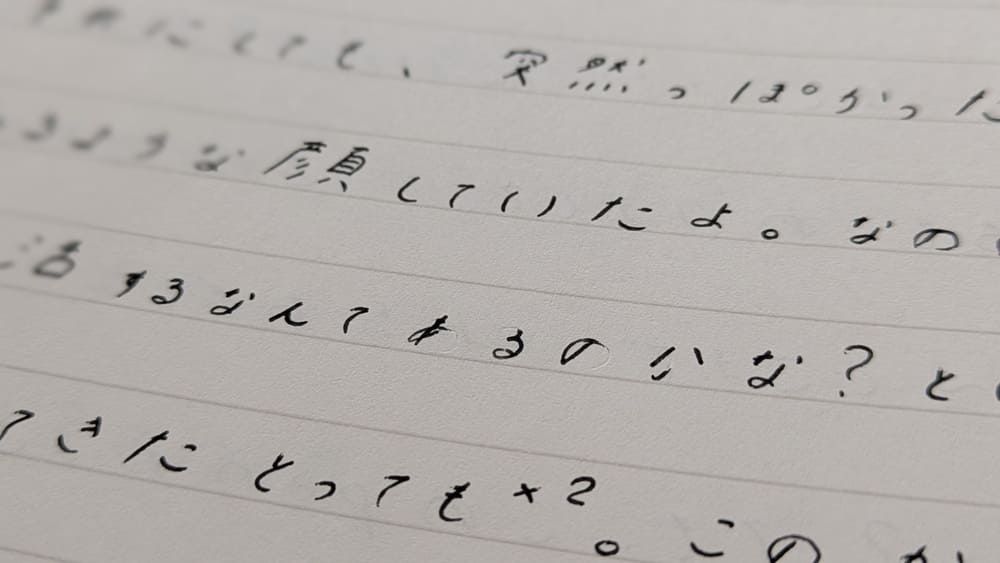 にしても、突然っぽかった
るような顔していたよ。なの
するなんてあるのかな？と
てきた とっても×2。この